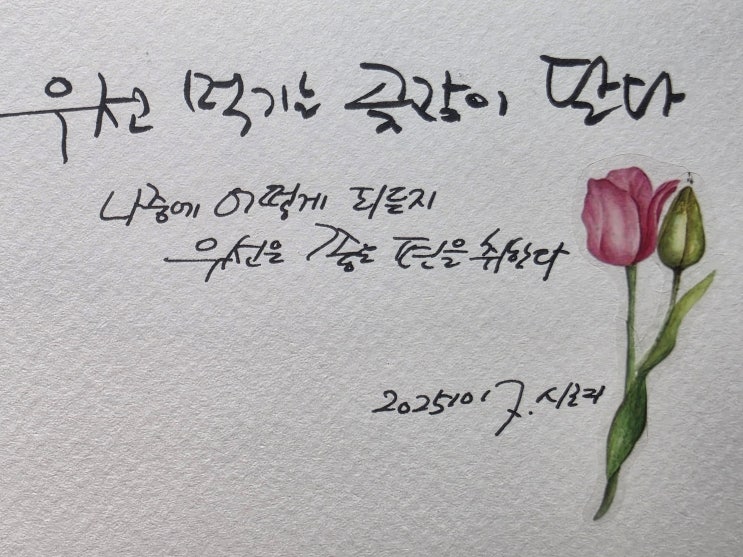 우선 먹기는 곶감이 달다
나중에 어떻게 되든지
우선은 좋은 편을 취한다
20251017.